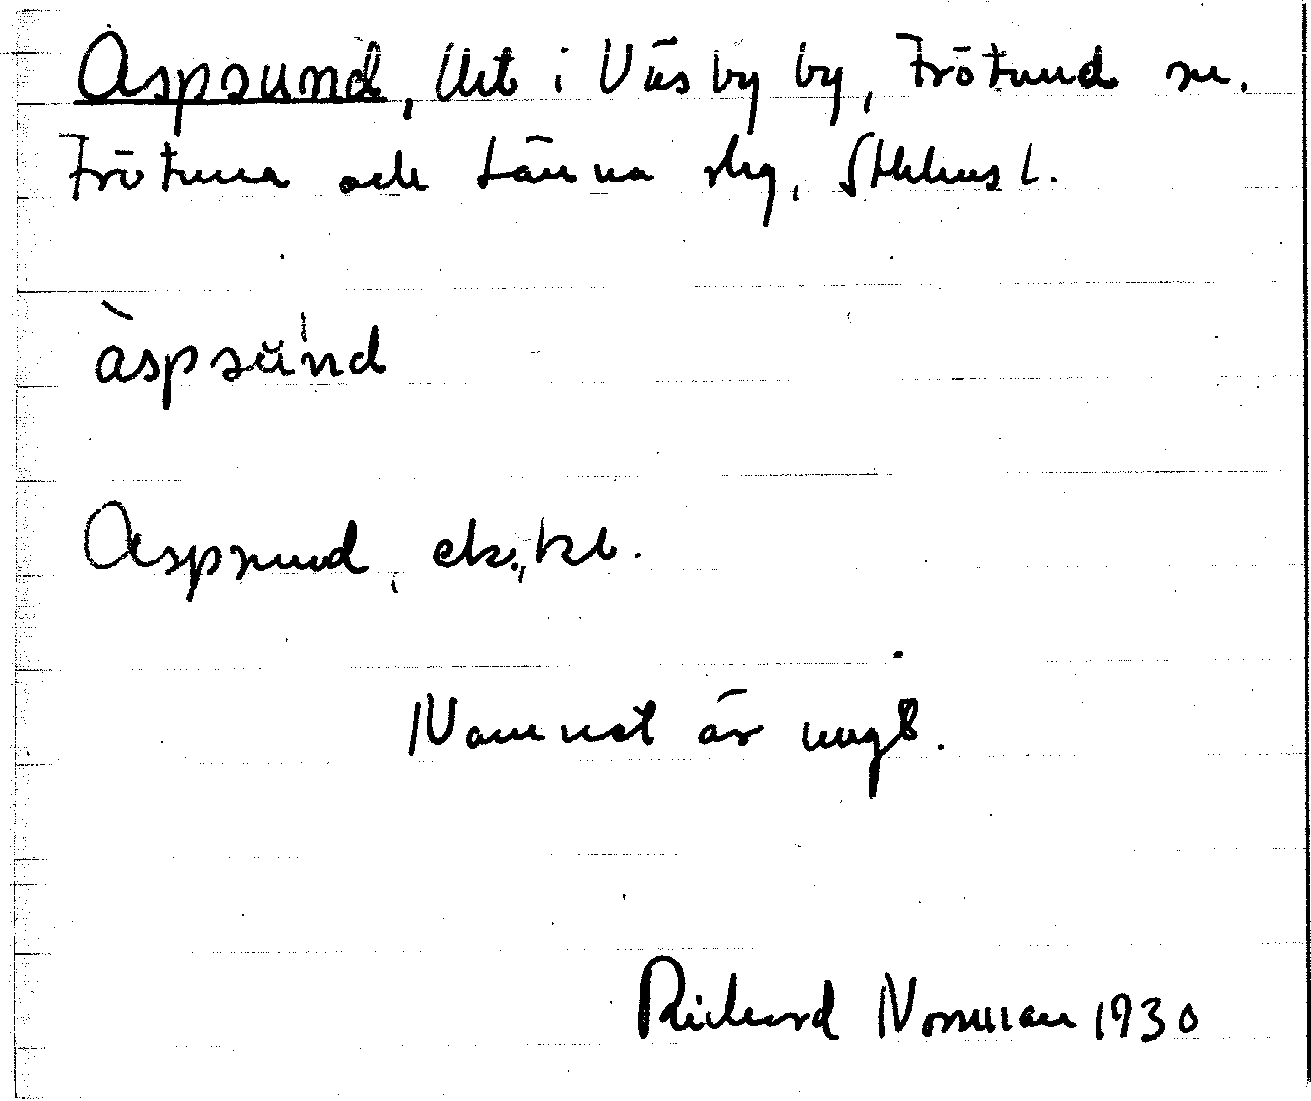 Aspsund, lht i Väsby by, Frötuna sn.
Frötuna och Länna slg, Sthlms l.
àspsŭ̍nd
Aspsund, ek.,
Namnet är nug8.
Richard Norman 1930